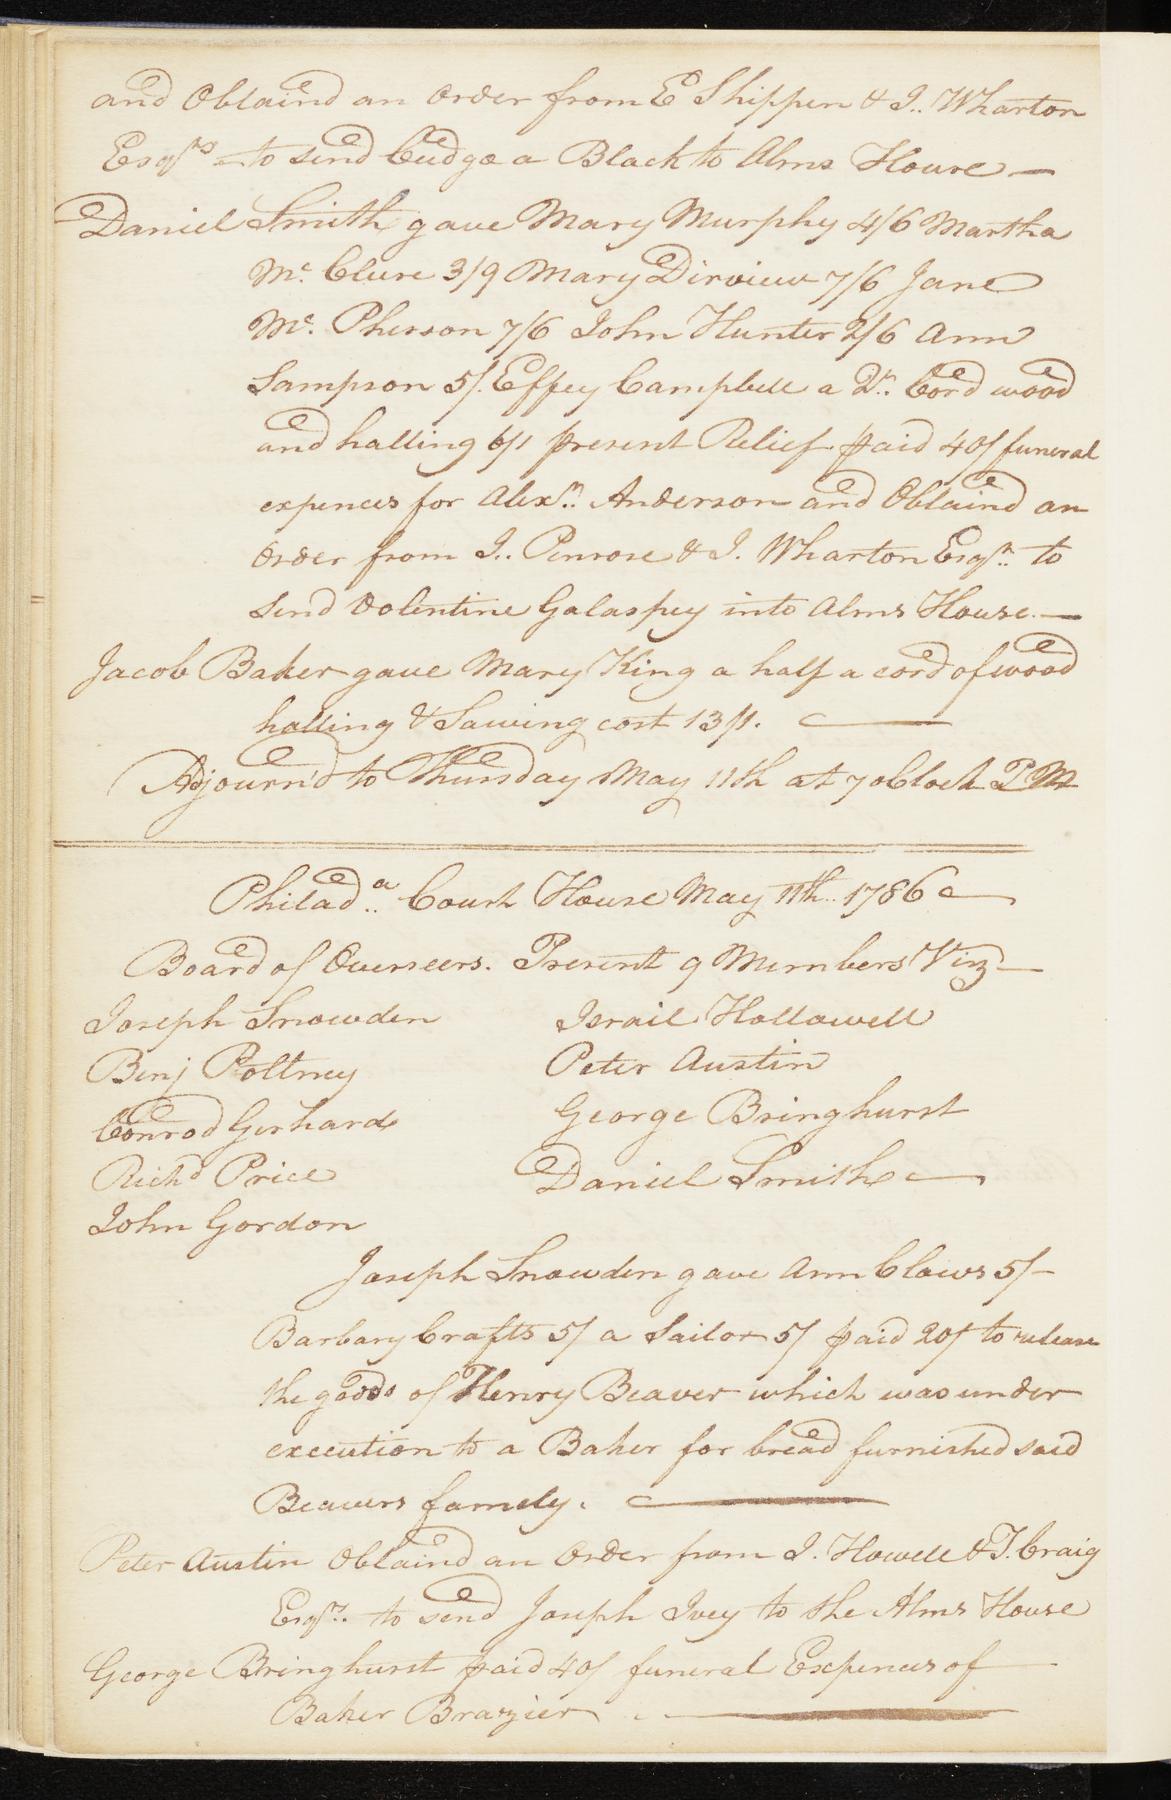 and Obtaind an order from E Shippen & I. Wharton
Esqrs to send Cudgo a Black to Alms House —
Daniel Smith gave Mary Murphy 4/6 Martha
Mc. Clure 3/9 Mary Dirvieux 7/6 Jane
Mc. Pherson 7/6 John Hunter 2/6 Ann
Sampson 5/. Effey Campbell a Qr. Cord wood
and halling 6/1 present Relief paid 40/ funeral
expences for Alexr. Anderson and Obtaind an
Order from I. Penrose & I. Wharton Esqr. to
send Volentine Galaspey into Alms House. —
Jacob Baker gave Mary King a half a cord of wood
halling & Sawing cost 13/1. —
Adjourn'd to Thursday May 11th at 7 oClock PM
Philada. Court House May 11th. 1786
Board of Overseers. Present 9 Members Viz —
Joseph Snowden
Israil Hollowell
Benj Poltney
Peter Austin
Conrod Gerhard
George Bringhurst
Richd Price
Daniel Smith —
John Gordon
Joseph Snowden gave Ann Claws 5/–
Barbary Crafts 5/ a Sailor 5/ paid 20/ to release
the goods of Henry Beaver which was under
execution to a Baker for bread furnished said
Beavers famely. —
Peter Austin Obtaind an Order from I. Howell & T. Craig
Esqrs. to send Joseph Ivey to the Alms House
George Bringhurst paid 40/ funeral Expences of —
Baker Brazier —